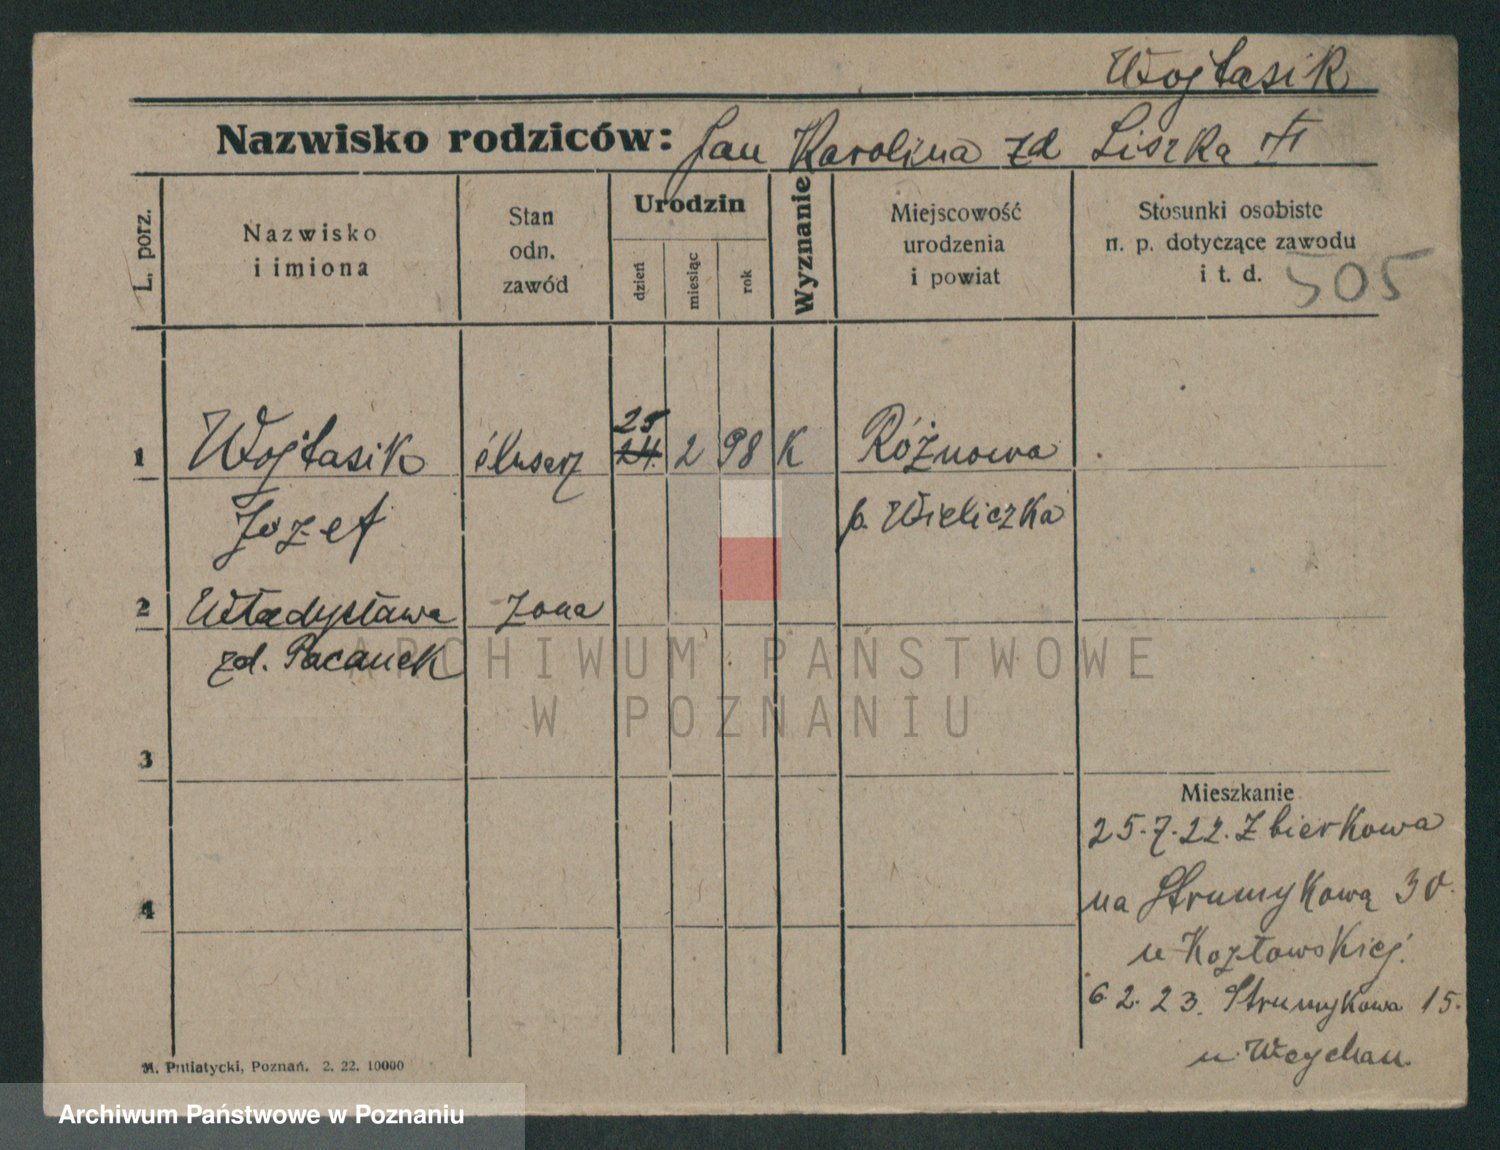 Wojtasik
Nazwisko rodziców: Jan Karolina zd Liszka
L. porz.
Nazwisko
i imiona
Stan
odn.
zawód
Urodzin
dzień
miesiąc
rok
Wyznanie
Miejscowość
urodzenia
i powiat
Stosunki osobiste
n. p. dotyczące zawodu
i t. d.
505
25
1 Wojtasik ślusarz 24. 2 98 K Różnowa
Józef p. Wieliczka
2 Władysława żona
zd. Pacanek
ARCHIWUM PAŃSTWOWE
W POZNANIU
3
Mieszkanie
25.7.22. Zbierkowa
4 na Strumykową 30.
u Kozłowskiej.
6.2.23. Strumykowa 15.
u Weychan.
M. Putiatycki, Poznań. 2. 22. 10000
Archiwum Państwowe w Poznaniu